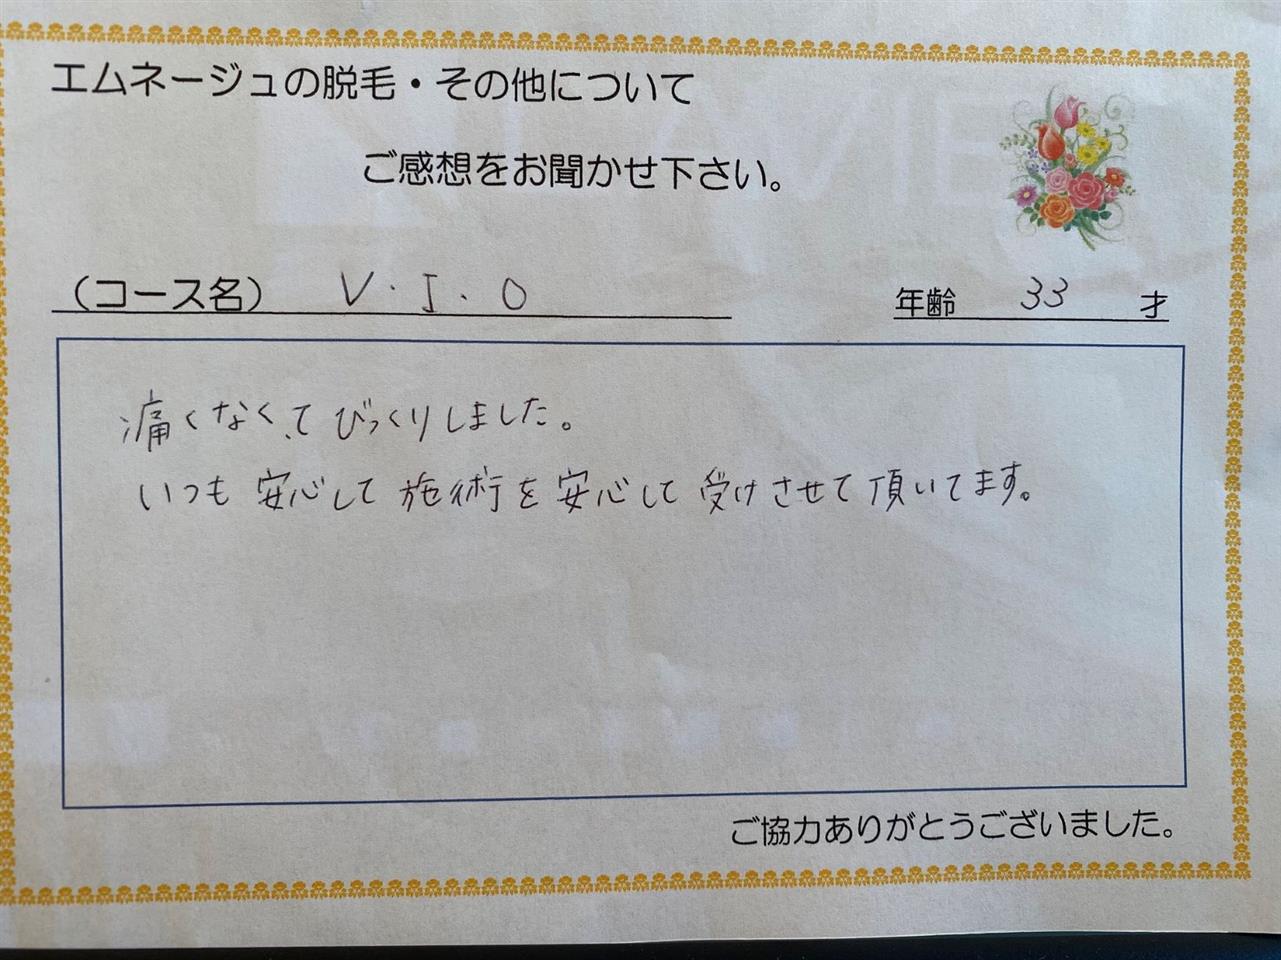 エムネージュの脱毛・その他について
ご感想をお聞かせ下さい。
（コース名） V・I・O 年齢 33 才
痛くなくてびっくりしました。
いつも安心して施術を安心して受けさせて頂いてます。
ご協力ありがとうございました。